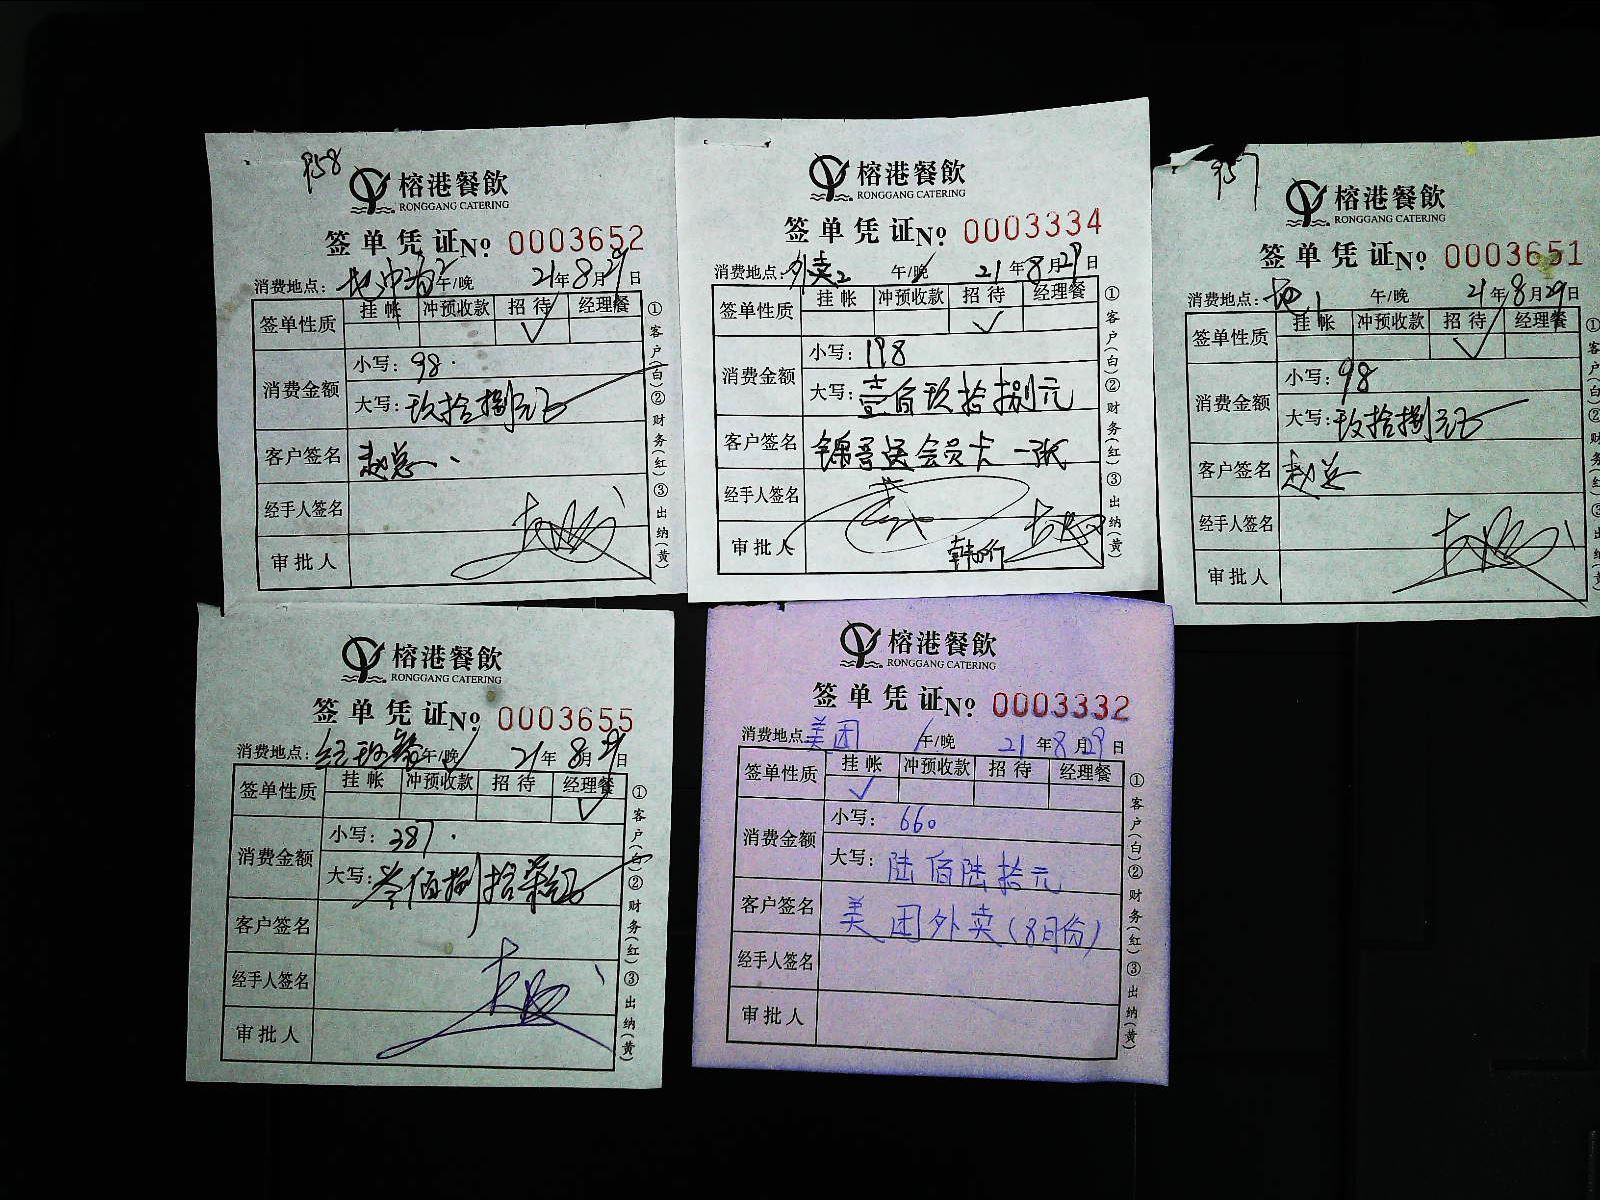 958
榕港餐飲
RONGGANG CATERING
签单凭证No 0003652
消费地点: 午/晚 21年8月29日
签单性质 挂帐 冲预收款 招待 经理餐
✓
消费金额 小写: 98.
大写: 玖拾捌元正
客户签名 赵总
经手人签名
审批人
①客户(白)②财务(红)③出纳(黄)
榕港餐飲
RONGGANG CATERING
签单凭证No 0003334
消费地点: 外卖2 午/晚 21年8月29日
签单性质 挂帐 冲预收款 招待 经理餐
✓
消费金额 小写: 198
大写: 壹佰玖拾捌元
客户签名 锦哥送会员卡一张
经手人签名
审批人
①客户(白)②财务(红)③出纳(黄)
957
榕港餐飲
RONGGANG CATERING
签单凭证No 0003651
消费地点: 午/晚 21年8月29日
签单性质 挂帐 冲预收款 招待 经理餐
✓
消费金额 小写: 98
大写: 玖拾捌元正
客户签名 赵总
经手人签名
审批人
榕港餐飲
RONGGANG CATERING
签单凭证No 0003655
消费地点: 经理餐 午/晚 21年8月29日
签单性质 挂帐 冲预收款 招待 经理餐
✓
消费金额 小写: 387.
大写: 叁佰捌拾柒元正
客户签名
经手人签名
审批人
①客户(白)②财务(红)③出纳(黄)
榕港餐飲
RONGGANG CATERING
签单凭证No 0003332
消费地点: 美团 午/晚 21年8月29日
签单性质 挂帐 冲预收款 招待 经理餐
✓
消费金额 小写: 660
大写: 陆佰陆拾元
客户签名 美团外卖(8月份)
经手人签名
审批人
①客户(白)②财务(红)③出纳(黄)